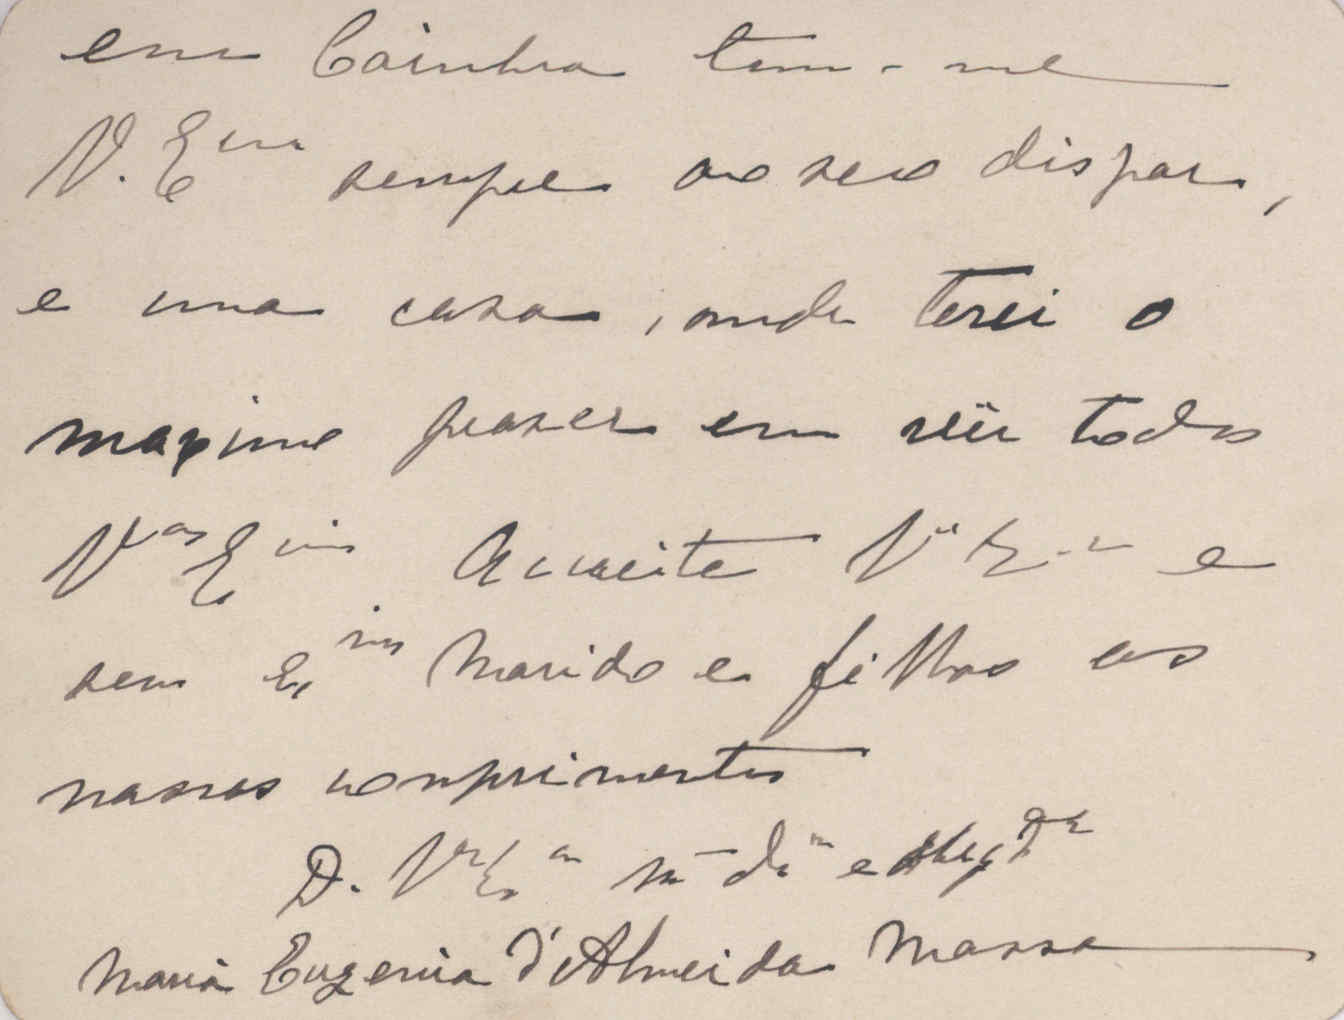 em Coimbra tem-me
V. Exma sempre ao seu dispor,
e uma casa, onde terei o
maximo praser em vêr todos
Vas Exias Acceite Va Exa e
seu Exmo Marido e filhos os
nossos comprimentos
D. Va Exa mto da e obrigda
Maria Eugenia d'Almeida Massa